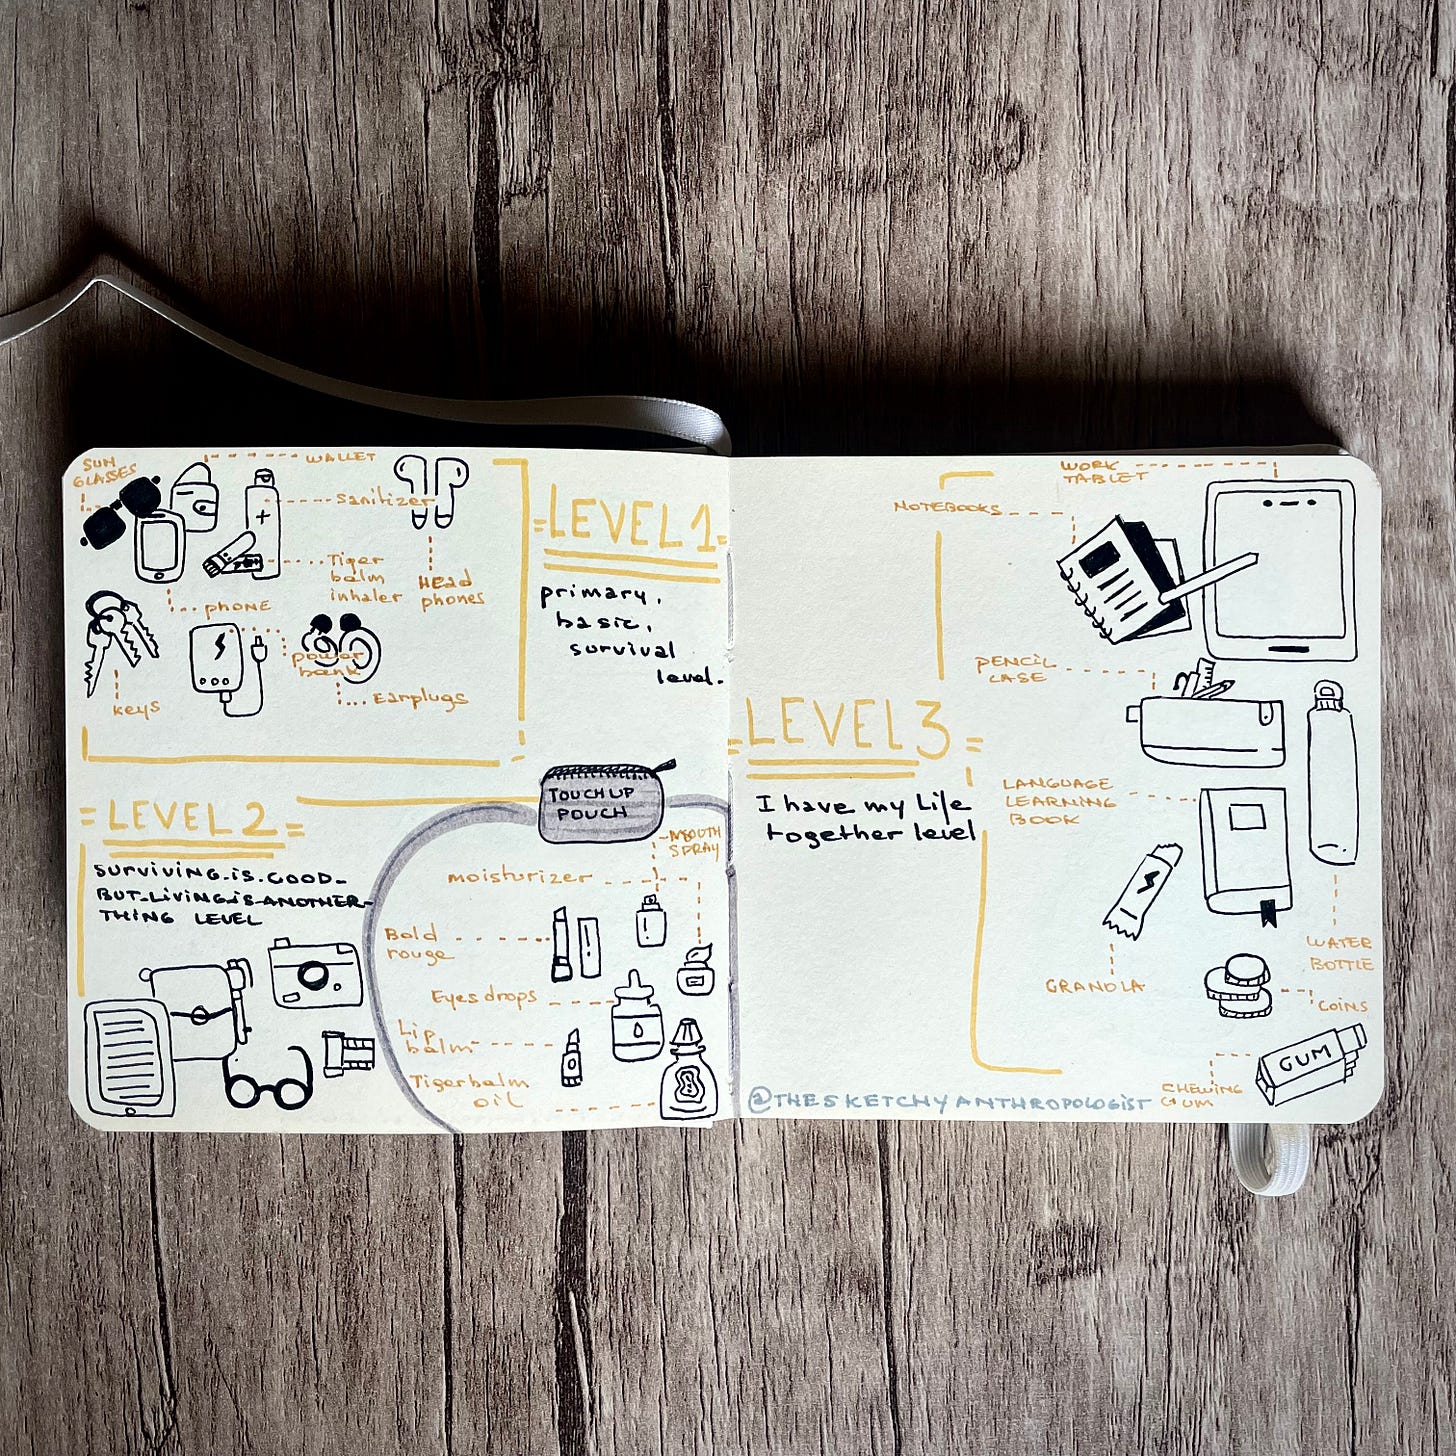 SUN
GLASSES
WALLET
Sanitizer
Tiger
balm
inhaler
Head
phones
PHONE
power
bank
Keys
Earplugs
=LEVEL 1=
primary,
basic,
survival
level.
=LEVEL 2=
SURVIVING.IS.GOOD-
BUT-LIVING-IS-ANOTHER-
THING LEVEL
TOUCH UP
POUCH
MOUTH
SPRAY
moisturizer
Bold
rouge
Eyes drops
Lip
balm
Tiger balm
oil
=LEVEL 3=
I have my Life
together level
WORK
TABLET
NOTEBOOKS
PENCIL
CASE
LANGUAGE
LEARNING
BOOK
WATER
BOTTLE
GRANOLA
COINS
GUM
CHEWING
GUM
@THESKETCHYANTHROPOLOGIST